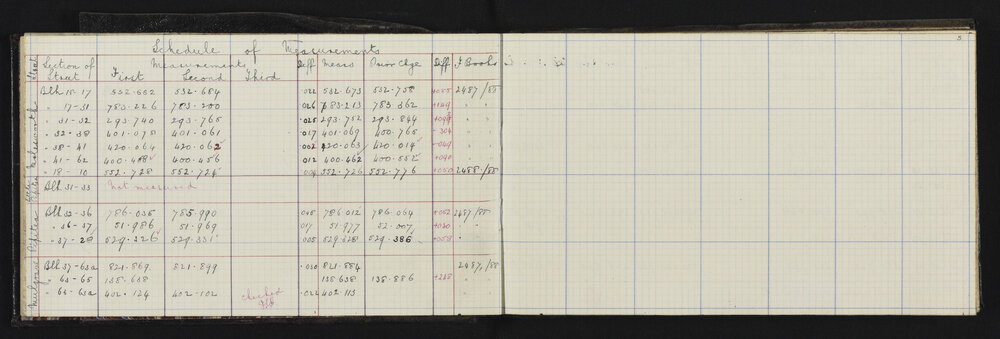 5
Schedule of Measurements
Street Section of Street Measurements First Second Third Diff Means Prior Chge Diff F Books
Molesworth Blk 15-17 532.662 532.684 .022 532.673 532.758 +.085 2487/85
" 17-31 783.226 783.200 .026 783.213 783.362 +.149 " "
" 31-32 293.740 293.765 .025 293.752 293.844 " "
" 32-38 401.078 401.061 .017 401.069 400.765 -.304 " "
" 38-41 420.064 420.062 .002 420.063 420.014 -.049 " "
" 41-62 400.468 400.456 .012 400.462 400.552 +.090 " "
" 18-10 552.728 552.724 .004 552.726 552.776 +.050 2488/85
Pipitea Blk 31-33 Not measured
Pipitea Blk 33-36 786.035 785.990 .045 786.012 786.064 +.052 2487/85
" 36-37 51.986 51.969 .017 51.977 52.007 +.030 " "
" 37-28 529.326 529.331 .005 529.328 529.386 +.058 " "
Mulgrave Blk 37-63a 821.869 821.899 .030 821.884 2487/85
" 63-65 138.638 138.638 138.886 +.248 " "
" 65-63a 402.124 402.102 checked .022 402.113 " "